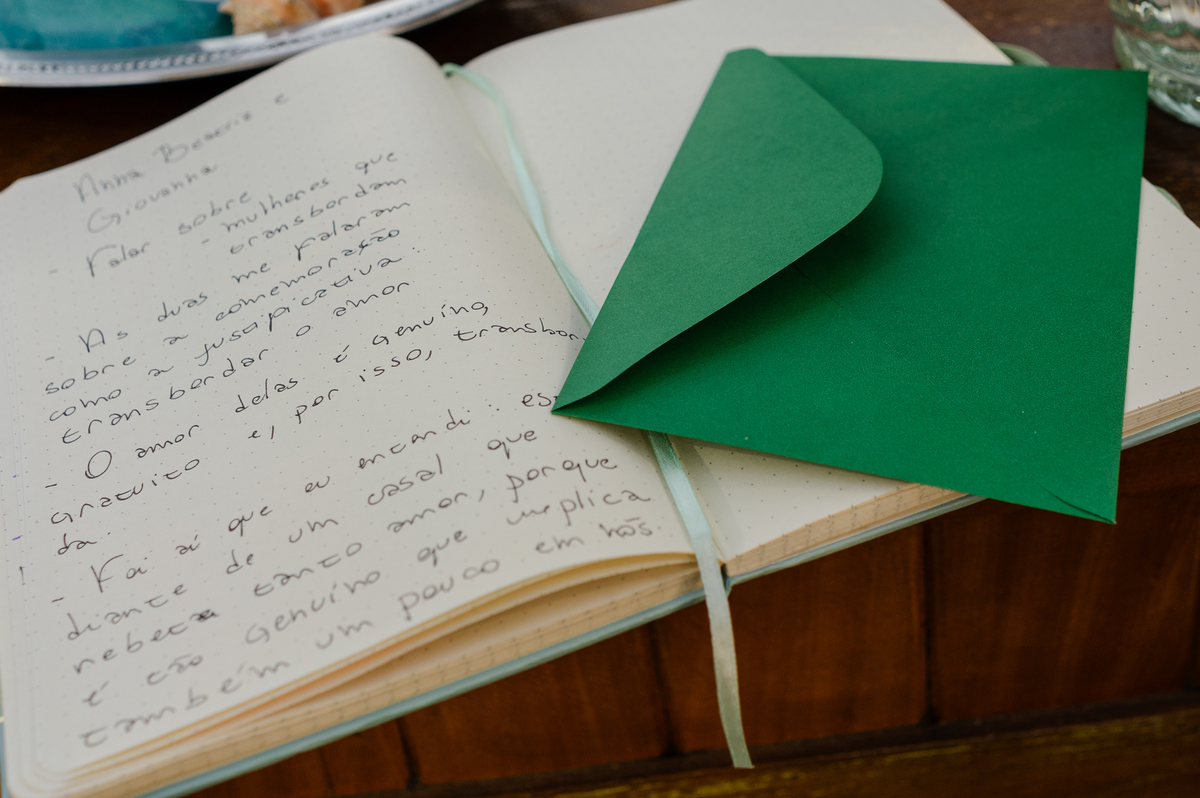 Anna Beatriz e
Giovanna
- Falar sobre
- mulheres que
transbordam
- As duas me falaram
sobre a comemoração
como a justificativa.
transbordar o amor
- O amor delas é genuíno,
gratuito e, por isso, transbor-
da.
- Foi aí que eu entendi:
diante de um casal que
tanto amor, porque
é tão genuíno que implica
também um pouco em nós.